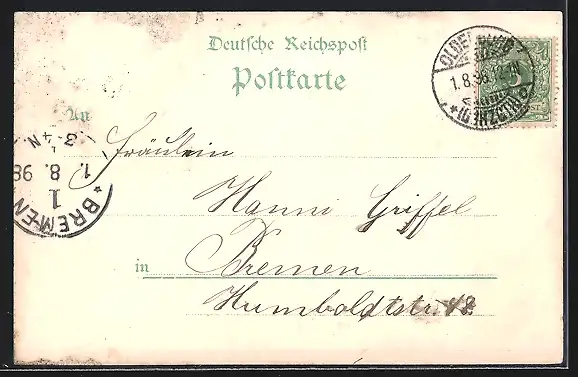 Deutsche Reichspost
Postkarte
OLDENBURG
1.8.98.
An
3-4 N.
1. 8. 98
1
* BREMEN
Fräulein
Hanni Griffel
in Bremen
Humboldtstr. 48